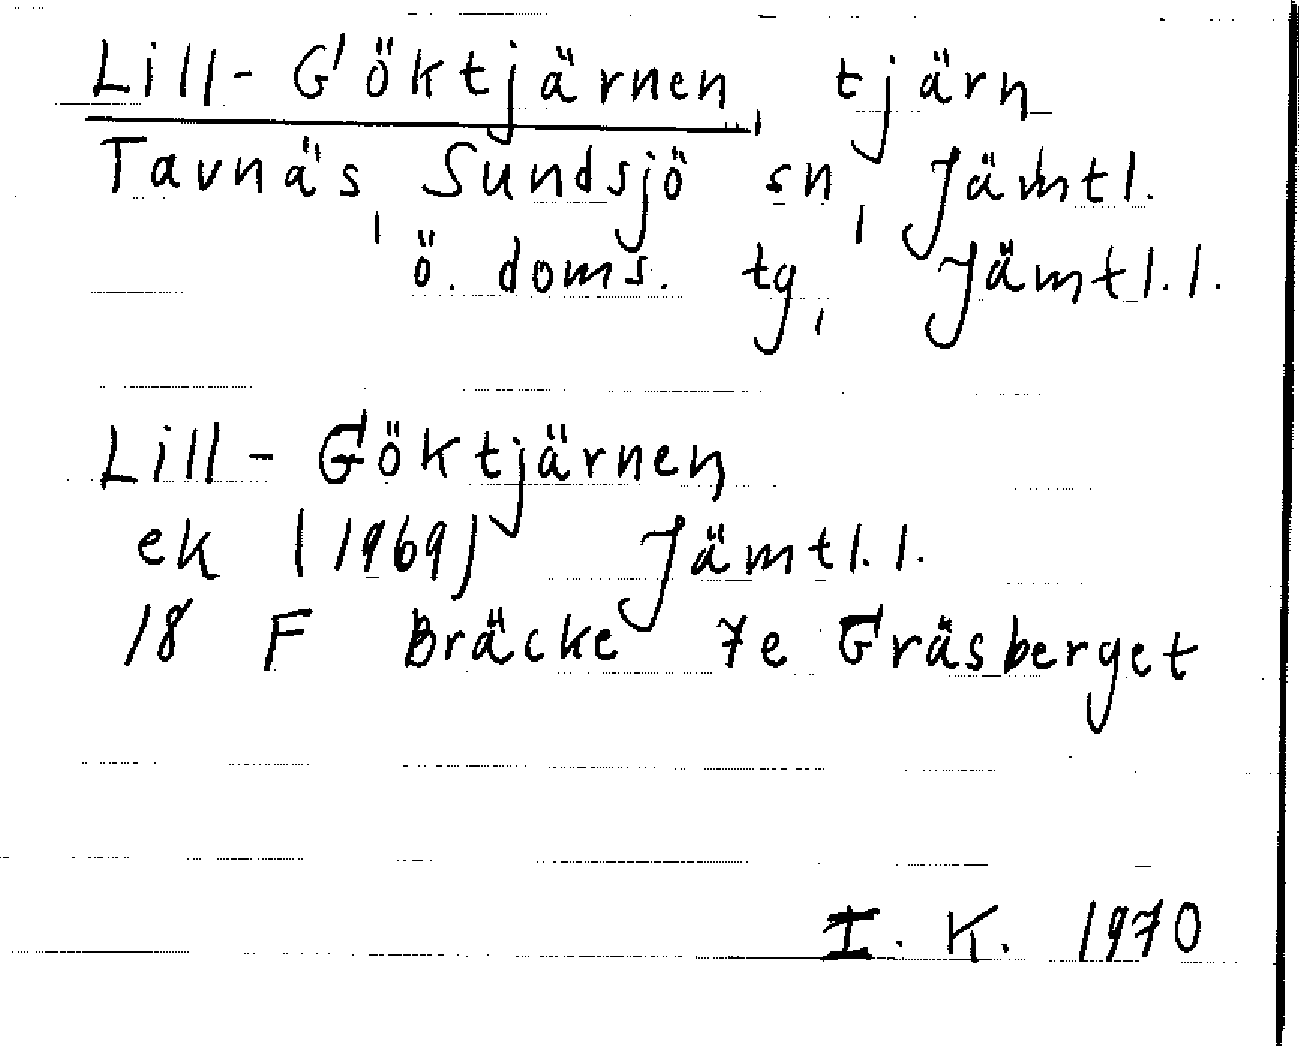 Lill-Göktjärnen, tjärn
Tavnäs, Sundsjö sn, Jämtl.
ö. doms. tg, Jämtl.l.
Lill-Göktjärnen
ek (1969) Jämtl.l.
18 F Bräcke 7e Gräsberget
I. K. 1970